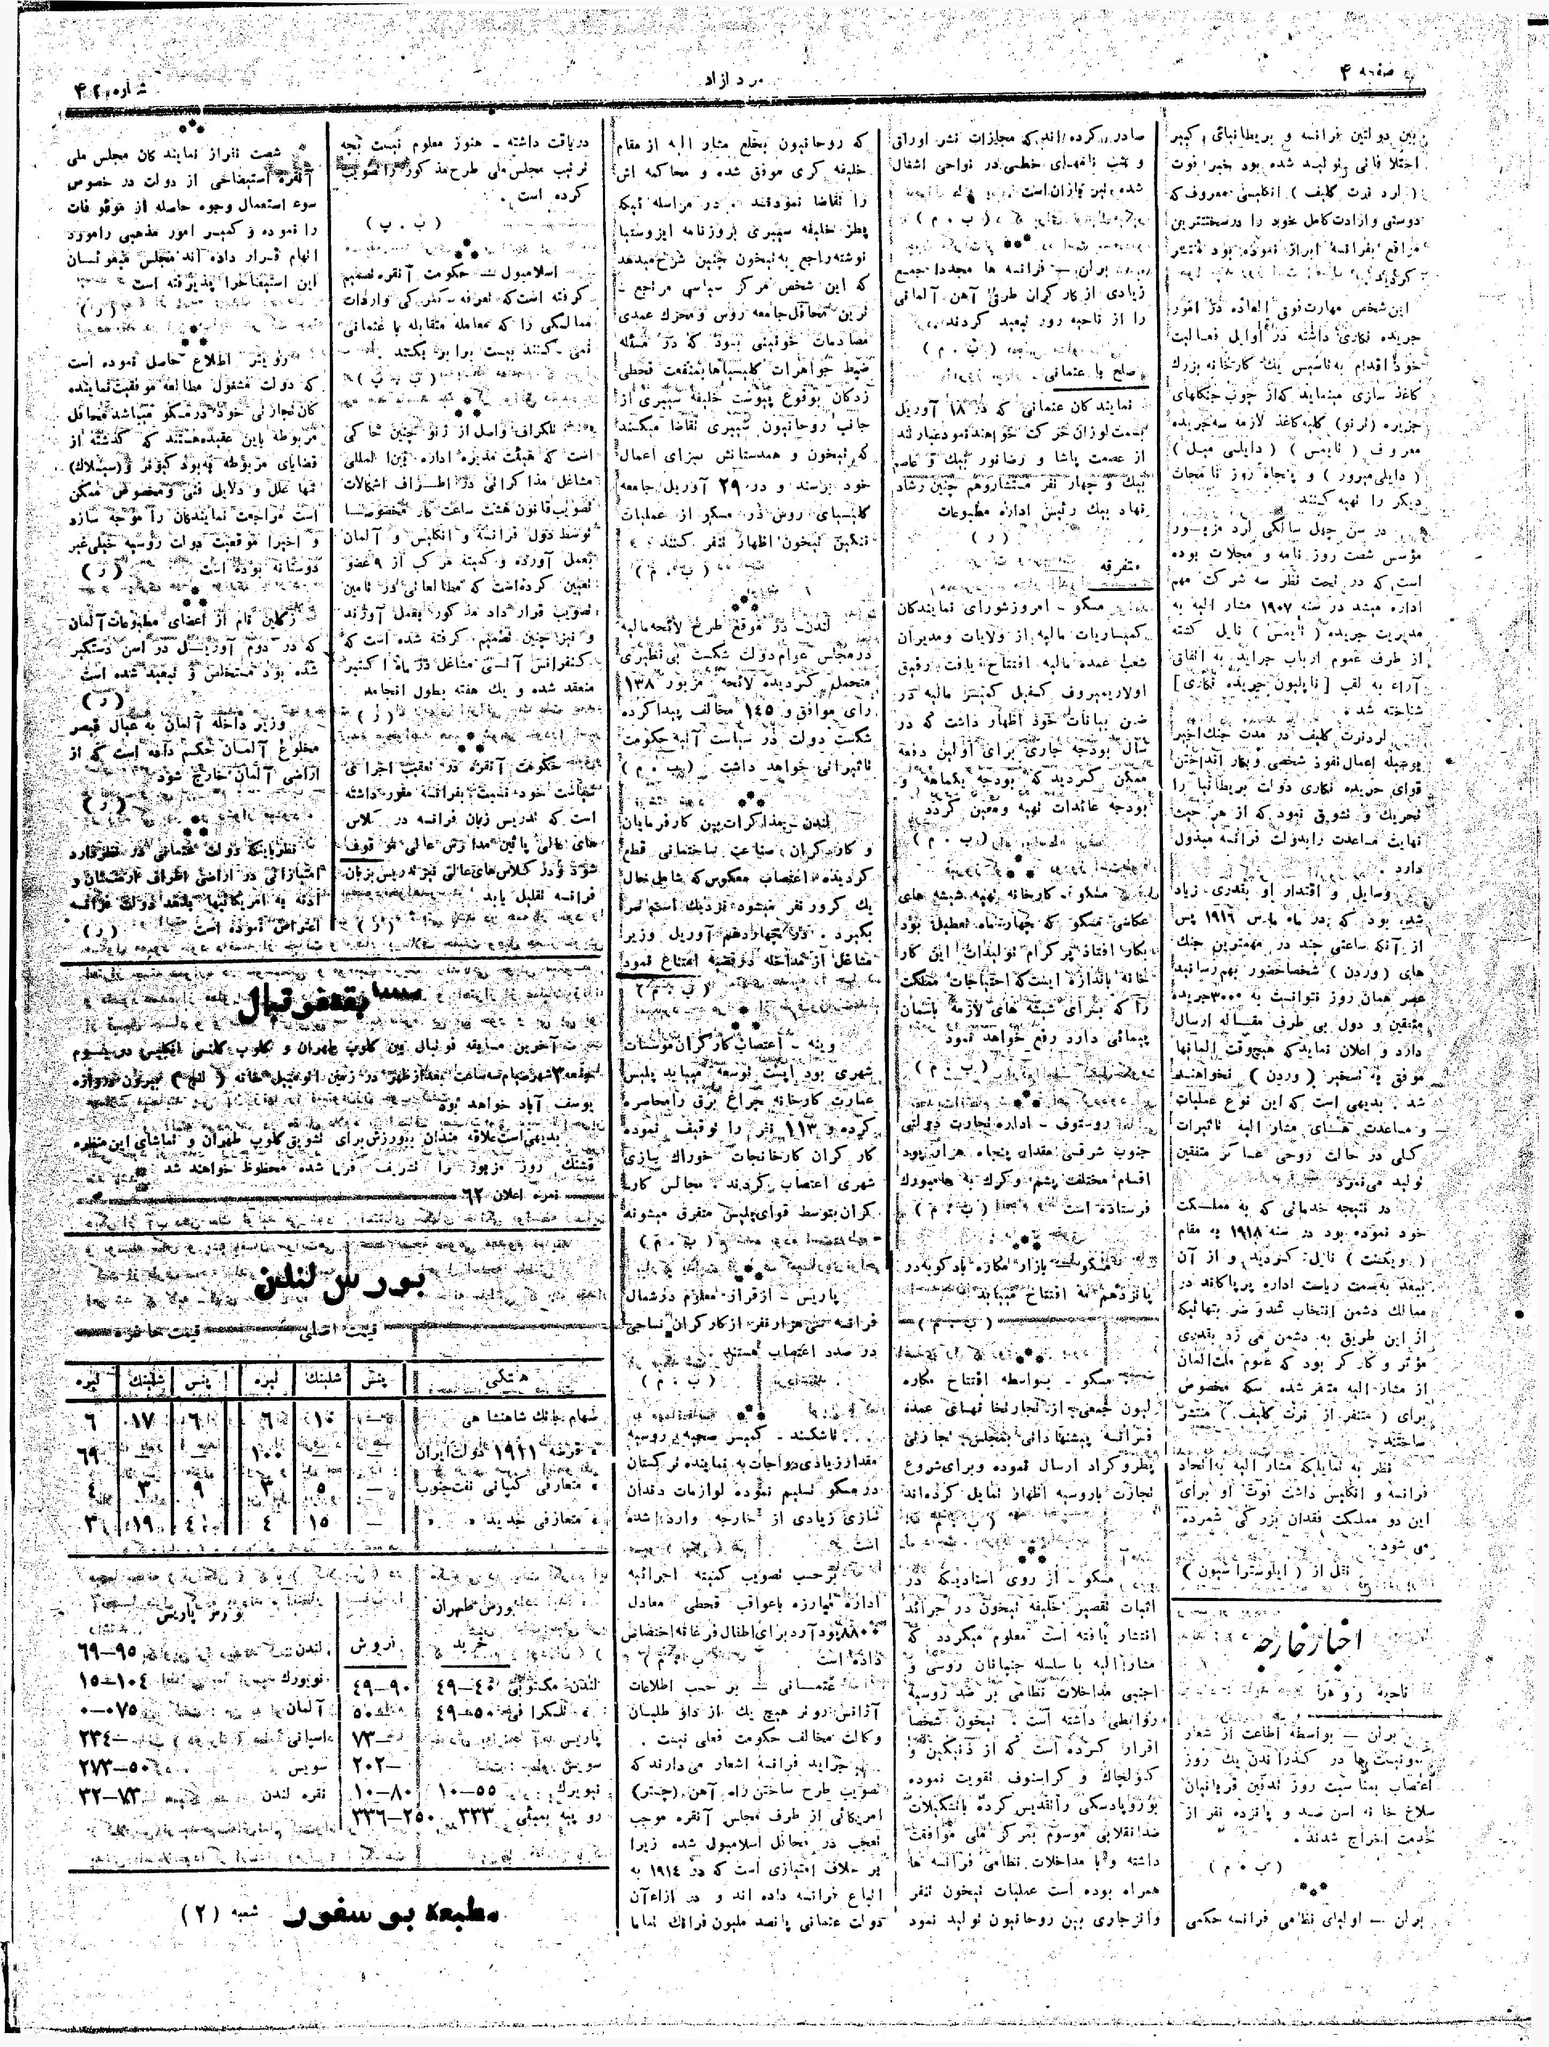 صفحه ۴
مرد ازاد
شماره ۴۲
بین دولتین فرانسه و بریطانیای کبیر
اختلافاتی تولید شده بود خبر فوت
( لرد نرت کلیف ) انگلیسی معروف که
دوستی و ارادت کامل خود را در سختترین
مواقع بفرانسه ابراز نموده بود منتشر
گردید
این شخص مهارت فوق العاده در امور
جریده نگاری داشته در اوایل فعالیت
خود اقدام به تاسیس یك کارخانه بزرك
کاغذ سازی مینماید که از چوب جنگلهای
جزیره (ترنو) کلیه کاغذ لازمه سه جریده
معروف ( تایمس ) ( دایلی میل )
( دایلی میرور ) و پنجاه روز نامجات
دیگر را تهیه کنند
در سن چهل سالگی لرد مزبور
مؤسس شصت روز نامه و مجلات بوده
است که در تحت نظر سه شرکت مهم
اداره میشد در سنه ۱۹۰۷ مشار الیه به
مدیریت جریده ( تایمس ) نایل گشته
از طرف عموم ارباب جراید به اتفاق
آراء به لقب [ ناپلیون جریده نگاری]
شناخته شد
لرد نرت کلیف در مدت جنك اخیر
بوسیله اعمال نفوذ شخصی و بکار انداختن
قوای جریده نگاری دولت بریطانیا را
تحریك و تشویق نمود که از هر حیث
نهایت مساعدت را بدولت فرانسه مبذول
دارد .
وسایل و اقتدار او بقدری زیاد
شده بود که در ماه مارس ۱۹۱۶ پس
از آنکه ساعتی چند در مهمترین جنك
های ( وردن ) شخصا حضور بهم رسانید
عصر همان روز توانست به ۳۰۰۰ جریده
متفقین و دول بی طرف مقاله ارسال
دارد و اعلان نماید که هیچوقت المانها
موفق به تسخیر ( وردن ) نخواهند
شد . بدیهی است که این نوع عملیات
و مساعدت های مشار الیه تاثیرات
کلی در حالت روحی عساکر متفقین
تولید می نمود
در نتیجه خدماتی که به مملکت
خود نموده بود در سنه ۱۹۱۸ به مقام
( ویکنت ) نایل گردید و از آن
ببعد بسمت ریاست اداره پرپاکاند در
ممالك دشمن انتخاب شد و ضربتهائیکه
از این طریق به دشمن می زد بقدری
مؤثر و کارگر بود که عموم ملت المان
از مشار الیه متنفر شده سکه مخصوص
برای ( متنفر از نرت کلیف ) منتشر
ساختند
نظر به تمایلیکه مشار الیه به اتحاد
فرانسه و انگلیس داشت فوت او برای
این دو مملکت فقدان بزرگی شمرده
می شود .
نقل از ( ایلوستراسیون )
اخبار خارجه
ناحیه روهر
برلن — بواسطه اطاعت از شعار
کمونیست ها در گذراندن یك روز
اعتصاب بمناسبت روز تدفین قربانیان
سلاخ خانه اسن صد و پانزده نفر از
خدمت اخراج شدند .
( ب . م )
***
برلن — اولیای نظامی فرانسه حکمی
صادر کرده اند که مجازات نشر اوراق
و شب نامهای خطی در نواحی اشغال
شده تیر باران است
( ب . م )
***
برلن — فرانسه ها مجددا جمع
زیادی از کارگران طرق آهن آلمانی
را از ناحیه رور تبعید کردند
( ب . م )
صلح با عثمانی
نمایندگان عثمانی که در ۱۸ آوریل
بسمت لوزان حرکت خواهند نمود عبارتند
از عصمت پاشا و رضا نور بیك و عاصم
بیك و چهار نفر مستشار و هم چنین رشاد
نهاد بیك رئیس اداره مطبوعات
( ر )
متفرقه
مسکو - امروز شورای نمایندگان
کمیساریات مالیه از ولایات و مدیران
شعب عمده مالیه افتتاح یافت رفیق
اولادیمیروف کفیل کمیسر مالیه در
ضمن بیانات خود اظهار داشت که در
سال بودجه جاری برای اولین دفعه
ممکن گردید که بودجه یکماهه و
بودجه عائدات تهیه و معین گردد
( ب . م )
***
مسکو - کارخانه تهیه شیشه های
عکاسی مسکو که چهار ماه تعطیل بود
بکار افتاد پرگرام تولیدات این کار
خانه باندازه ایست که احتیاجات مملکت
را که برای شیشه های لازمه بآسمان
پیمائی دارد رفع خواهد نمود
( ب . م )
***
روستوف - اداره تجارت دولتی
جنوب شرقی مقدار پنجاه هزار پود
اقسام مختلف پشم و کرك به هامبورك
فرستاده است ( ب . م )
***
مسکو - بازار مکاره بادکوبه در
پانزدهم مه افتتاح مییابد
( ب . م )
***
مسکو - بواسطه افتتاح مکاره
لیون جمعی از تجارتخانهای عمده
فرانسه پیشنهاداتی بمجلس تجارتی
پطروگراد ارسال نموده و برای شروع
تجارت با روسیه اظهار تمایل کرده اند
( ب . م )
***
مسکو - از روی اسنادیکه در
اثبات تقصیر خلیفه تیخون در جراید
انتشار یافته است معلوم میگردد که
مشار الیه با سلسله جنبانان روسی و
اجنبی مداخلات نظامی بر ضد روسیه
روابطی داشته است . تیخون شخصا
اقرار کرده است که از دنیکین و
کولچاك و کراسنوف تقویت نموده
بوروپادسکی را تقدیس کرده با تشکیلات
ضد انقلابی موسوم بمرکز ملی موافقت
داشته و با مداخلات نظامی فرانسه ها
همراه بوده است عملیات تیخون تنفر
و انزجاری بین روحانیون تولید نمود
که روحانیون بخلع مشار الیه از مقام
خلیفه گری موفق شده و محاکمه اش
را تقاضا نمودند . در مراسله ئیکه
پطر خلیفه سیبری بروزنامه ایزوستیا
نوشته راجع به تیخون چنین شرح میدهد
که این شخص مرکز سیاسی مرتجع -
ترین محافل جامعه روس و محرك عمدی
مصادمات خونینی بود که در مسئله
ضبط جواهرات کلیسیاها بمنفعت قحطی
زدگان بوقوع پیوست خلیفه سیبری از
جانب روحانیون سیبری تقاضا میکند
که تیخون و همدستانش بسزای اعمال
خود برسند و در ۲۹ آوریل جامعه
کلیسیای روس در مسکو از عملیات
ننگین تیخون اظهار تنفر کنند .
( ب . م )
***
لندن - در موقع طرح لائحه مالیه
در مجلس عوام دولت شکست بی نظیری
متحمل گردیده لائحه مزبور ۱۳۸
رای موافق و ۱٤٥ مخالف پیدا کرده
شکست دولت در سیاست آتیه حکومت
تاثیراتی خواهد داشت . ( ب . م )
***
لندن - مذاکرات بین کارفرمایان
و کارگران صناعت ساختمانی قطع
گردیده اعتصاب معکوس که شامل حال
یك کرور نفر میشود نزدیك است سر
بگیرد . در چهاردهم آوریل وزیر
مشاغل از مداخله در قضیه امتناع نمود
( ب . م )
***
وینه - اعتصاب کارگران مؤسسات
شهری بودابست توسعه مییابد پلیس
عمارت کارخانه چراغ برق را محاصره
کرده و ۱۱۳ نفر را توقیف نموده
کارگران کارخانجات خوراك پزی
شهری اعتصاب کردند . مجالس کار-
گران بتوسط قوای پلیس متفرق میشوند
( ب . م )
***
پاریس - از قرار معلوم در شمال
فرانسه سی هزار نفر از کارگران نساجی
در صدد اعتصاب هستند .
( ب . م )
***
تاشکند - کمیسر صحیه روسیه
مقدار زیادی دواجات به نماینده ترکستان
در مسکو تسلیم نموده لوازمات دندان
سازی زیادی از خارجه وارد شده
است
برحسب تصویب کمیته اجرائیه
اداره مبارزه با عواقب قحطی معادل
۸۸۰۰ پود آرد برای اطفال فرغانه اختصاص
داده است ( ب . م )
عثمانی — بر حسب اطلاعات
آژانس روتر هیچ یك از داو طلبان
وکالت مخالف حکومت فعلی نیست .
جراید فرانسه اشعار می دارند که
تصویب طرح ساختن راه آهن (چستر)
امریکائی از طرف مجلس آنقره موجب
تعجب در محافل اسلامبول شده زیرا
بر خلاف امتیازی است که در ۱۹۱٤ به
اتباع فرانسه داده اند و در ازاء آن
دولت عثمانی پانصد ملیون فرانك تماما
دریافت داشته - هنوز معلوم نیست بچه
ترتیب مجلس ملی طرح مذکور را تصویب
کرده است .
( ب . پ )
***
اسلامبول — حکومت آنقره تصمیم
گرفته است که تعرفه گمرکی واردات
ممالکی را که معامله متقابله با عثمانی
نمی کنند بیست برابر بکنند
( ب . پ )
***
تلگراف واصل از ژنو چنین حاکی
است که هیئت مدیره اداره بین المللی
مشاغل مذاکراتی در اطراف اشکالات
تصویب قانون هشت ساعت کار مخصوصا
توسط دول فرانسه و انگلیس و آلمان
بعمل آورده و کمیته مرکب از ۹ عضو
تعیین کرده است که مطالعاتی در تامین
تصویب قرار داد مذکور بعمل آورند
و نیز چنین تصمیم گرفته شده است که
کنفرانس آلتی مشاغل در ماه اکتبر
منعقد شده و یك هفته بطول انجامد
( ر )
***
حکومت آنقره در تعقیب اجرای
سیاست خود نسبت بفرانسه مقرر داشته
است که تدریس زبان فرانسه در کلاس
های عالی پائین مدارس عالی موقوف
شود و در کلاس های عالی نیز تدریس بزبان
فرانسه تقلیل یابد
( ر )
***
شصت نفر از نمایندگان مجلس ملی
آنقره استیضاحی از دولت در خصوص
سوء استعمال وجوه حاصله از موقوفات
را نموده و کمیسر امور مذهبی را مورد
اتهام قرار داده اند مجلس مبعوثان
این استیضاح را پذیرفته است
( ر )
***
رویتر اطلاع حاصل نموده است
که دولت مشغول مطالعه موقعیت نماینده
گان تجارتی خود در مسکو میباشد محافل
مربوطه باین عقیده هستند که گذشته از
قضایای مربوطه به بود کیویز و (سیتلاك)
تنها علل و دلایل فنی و مخصوص ممکن
است مراجعت نمایندگان را موجه سازد
و اخیرا موقعیت دولت روسیه خیلی غیر
دوستانه بوده است ( ر )
***
رکلین نام از اعضای مطبوعات آلمان
که در دوم آوریل در اسن دستگیر
شده بود مستخلص و تبعید شده است
( ر )
وزیر داخله آلمان به عیال قیصر
مخلوع آلمان حکم داده است که از
اراضی آلمان خارج شود
( ر )
***
نظر باینکه دولت عثمانی در نظر دارد
امتیازاتی در اراضی اطراف ارمنستان و
ادنه به امریکائیها بدهد دولت فرانسه
اعتراض نموده است ( ر )
مسابقه فوتبال
آخرین مسابقه فوتبال بین کلوپ طهران و کلوپ کلنی انگلیس در یوم
جمعه ۳ شهر صیام سه ساعت بعد از ظهر در زمین اتومبیل خانه ( لنج ) بیرون دروازه
یوسف آباد خواهد بود
بدیهی است علاقه مندان بورزش برای تشویق کلوپ طهران و تماشای این منظره
قشنك روز مزبور را تشریف فرما شده محظوظ خواهند شد
نمره اعلان ۶۲
بورس لندن
قیمت اصلی قیمت حاضره
هتگی پنس شلینك لیره پنس شلینك لیره
سهام بانك شاهنشاهی — ۱۰ ۶ ۶ ۱۷ ۶
قرضه ۱۹۱۱ دولت ایران — — ۱۰۰ — — ۶۹
متعارفی کمپانی نفت جنوب — ۵ ۳ ۹ ۳ ٤
متعارفی جدید — ۱۵ ٤ ٤ ۱۹ ۳
بورس طهران
خرید فروش
لندن مکتوبی ٤۰—٤۹ ۹۰—٤۹
تلگرافی ۵۰—٤۹ ۵۰
پاریس ۷۳
سویس —۲۰۲
نیویرك ۵۵—۱۰ ۸۰—۱۰
روپیه بمبئی ۳۳۳ ۲۵۰—۳۳۶
بورس پاریس
لندن ۹۵—۶۹
نویورك ۱۰٤—۱۵
آلمان ۰۷۵—۰
اسپانی —۲۳٤
سویس ۵۰—۲۷۳
نقره لندن ۷۳—۳۲
مطبعه بوسفور شعبه (۲)